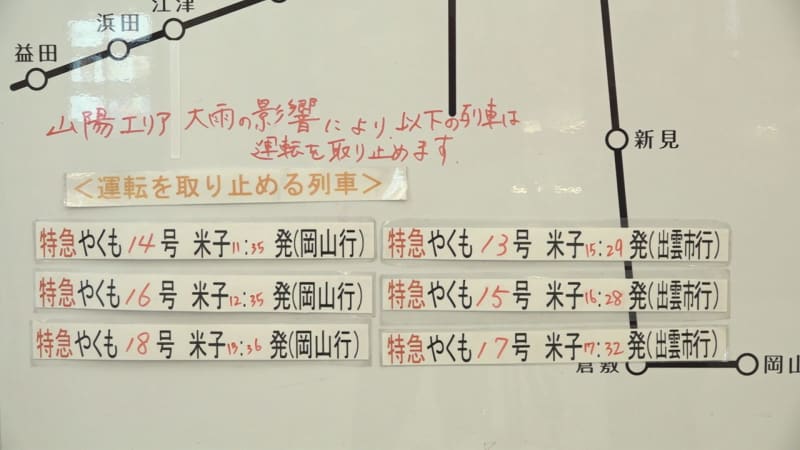 江津
浜田
益田
山陽エリア 大雨の影響により、以下の列車は
運転を取り止めます。
新見
<運転を取り止める列車>
特急やくも14号 米子11:35発(岡山行)
特急やくも13号 米子15:29発(出雲市行)
特急やくも16号 米子12:35発(岡山行)
特急やくも15号 米子16:28発(出雲市行)
特急やくも18号 米子13:36発(岡山行)
特急やくも17号 米子17:32発(出雲市行)
倉敷
岡山